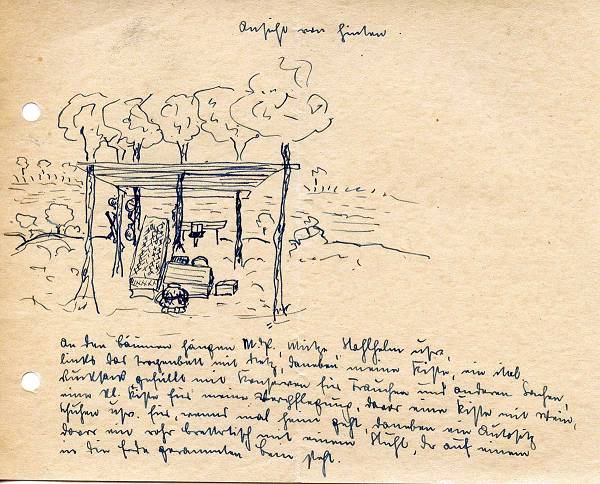 Ansicht von hinten.
An den Bäumen hängen M.P., Mütze, Stahlhelm usw.,
links das Tragenbett mit Netz, daneben meine Kiste, ein ital.
Rucksack gefüllt mit Konserven für Frauchen und anderen Sachen,
eine kl. Kiste für meine Verpflegung, davor eine Kiste mit Wein,
Schuhen usw. für, wenns mal heim geht, daneben ein Autositz
davor ein rohr Bretttisch mit einem Stuhl, der auf einem
in die Erde gerammten Bein steht.